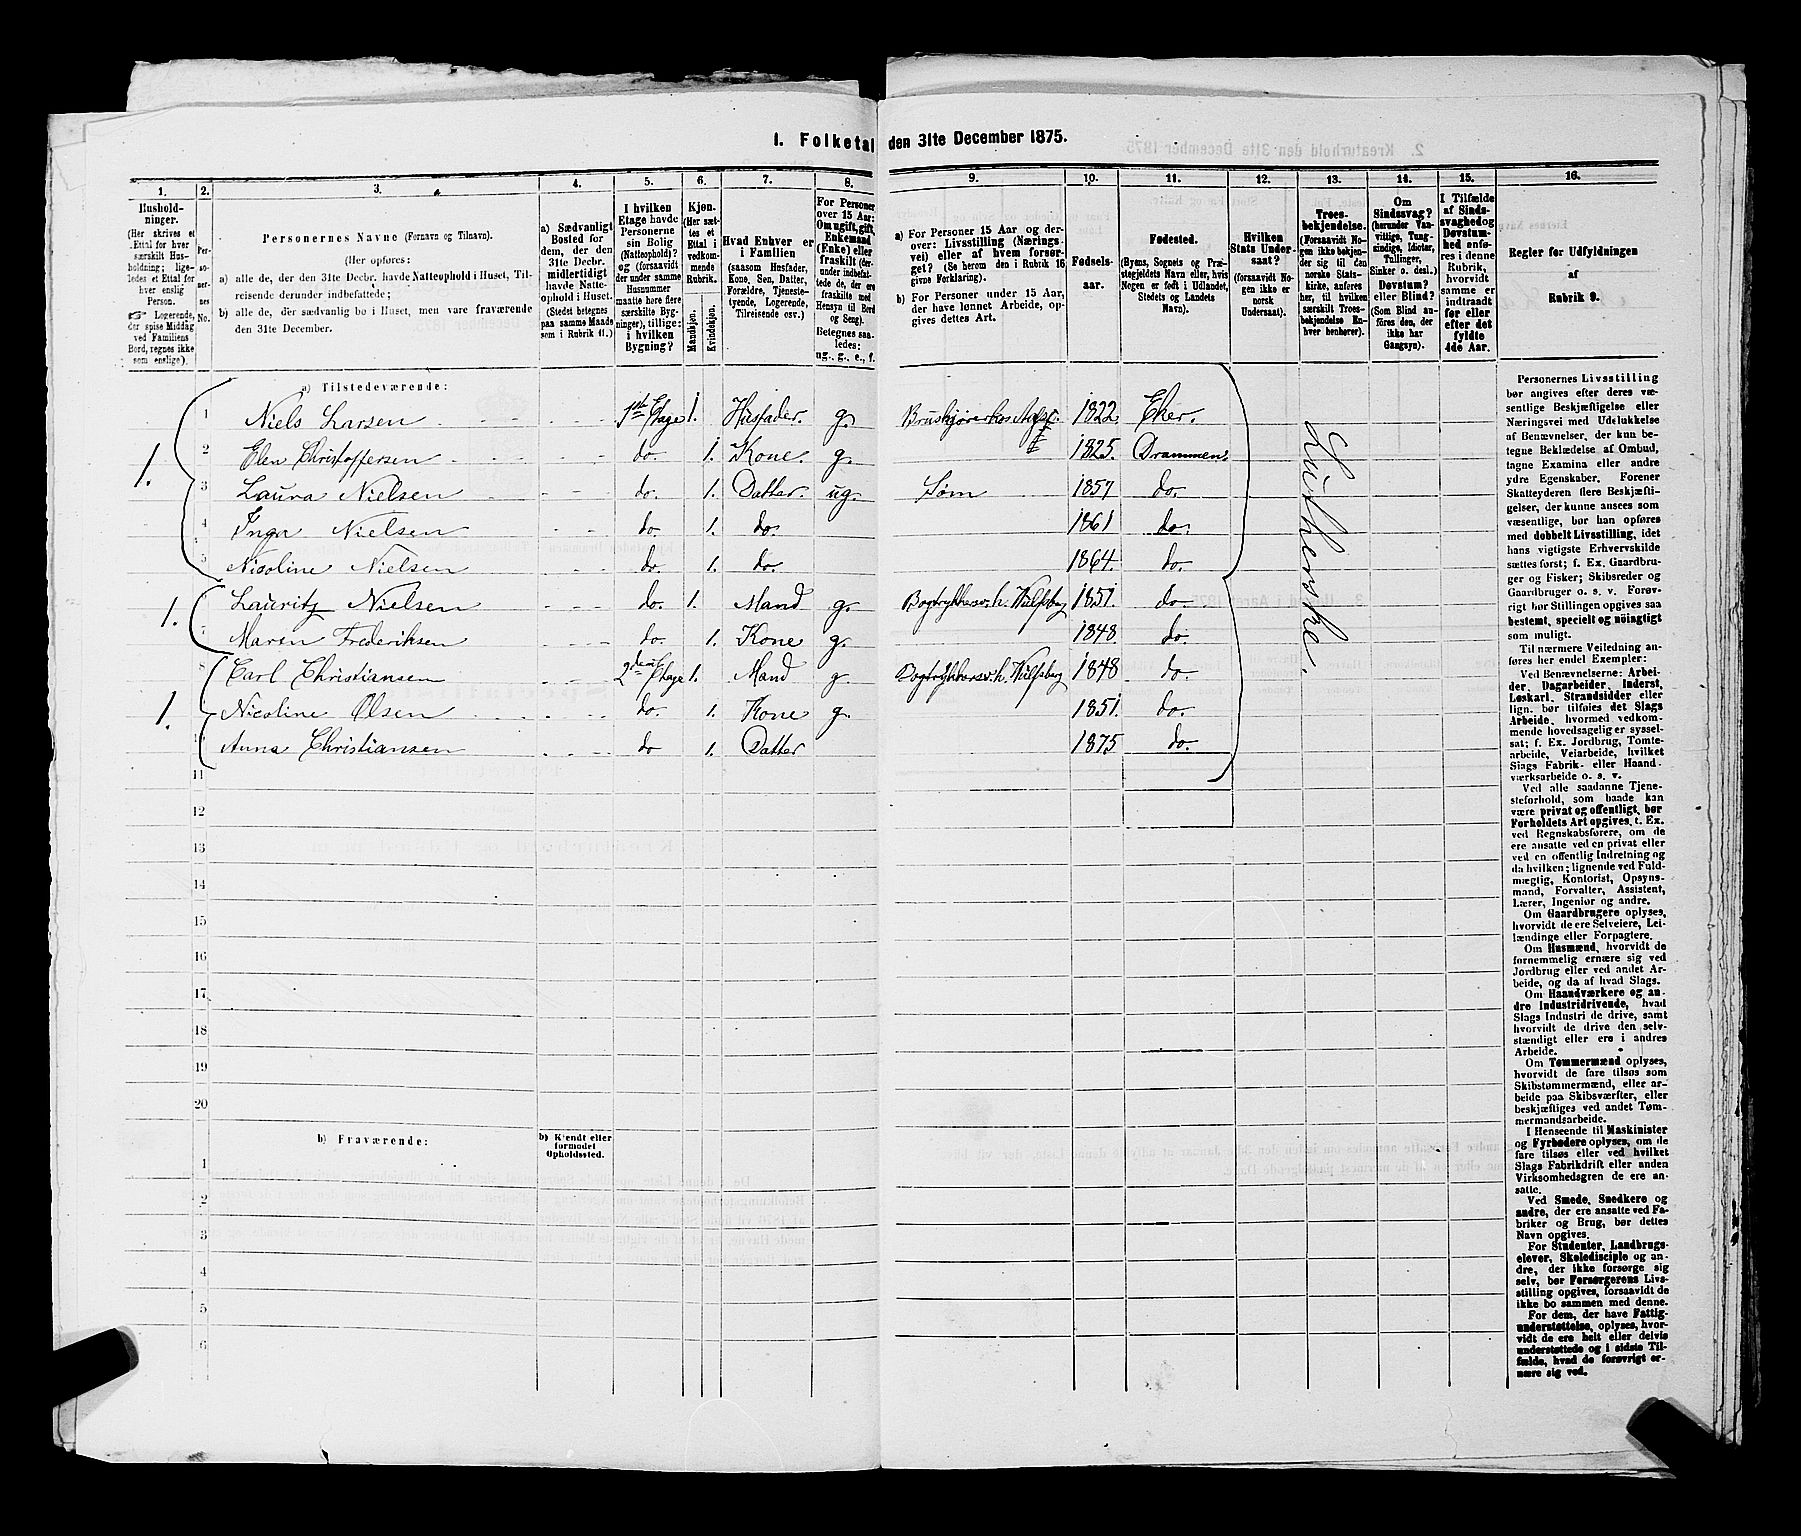 1. Folketal den 31te December 1875.
1. 2. 3. 4. 5. 6. 7. 8. 9. 10. 11. 12. 13. 14. 15. 16.
Husholdninger.
(Her skrives et
Ettal for hver
særskilt Husholdning;
ligeledes et Ettal for
hver enslig
Person.
Logerende,
der spise Middag
ved Familiens
Bord, regnes ikke
som enslige).
Personernes No.
Personernes Navne (Fornavn og Tilnavn).
(Her opføres:
a) alle de, der den 31te Decbr. havde Natteophold i Huset, Tilreisende derunder indbefattede;
b) alle de, der sædvanlig bo i Huset, men vare fraværende
den 31te December.
a) Sædvanligt
Bosted for
dem, der den
31te Decbr.
midlertidigt
havde Natteophold i Huset.
(Stedet betegnes
paa samme Maade
som i Rubrik 11.)
I hvilken
Etage havde
Personerne
sin Bolig
(Natteophold)?
og (forsaavidt
der under samme
Husnummer
maatte høre flere
særskilte Bygninger), tillige:
i hvilken
Bygning?
Kjøn.
(Her sættes et
Ettal i
vedkommende
Rubrik.
Mandkjøn.
Kvindekjøn.
Hvad Enhver er
i Familien
(saasom Husfader,
Kone, Søn, Datter,
Forældre, Tjenestetyende, Logerende,
Tilreisende osv.)
For Personer
over 15 Aar:
Om ugift, gift,
Enkemand
(Enke) eller
fraskilt (derunder indbefattede de, der ere
fraskilte med
Hensyn til Bord
og Seng).
Betegnes saaledes:
ug., g., e., f.
a) For Personer 15 Aar og derover: Livsstilling (Næringsvei) eller af hvem forsørget? (Se herom den i Rubrik 16
givne Forklaring).
b) For Personer under 15 Aar,
der have lønnet Arbeide, opgives dettes Art.
Fødselsaar.
Fødested.
(Byens, Sognets og Præstegjeldets Navn eller, hvis
Nogen er født i Udlandet,
Stedets og Landets
Navn).
Hvilken
Stats Undersaat?
(forsaavidt Nogen ikke er
norsk
Undersaat).
Troesbekjendelse.
(Forsaavidt Nogen ikke bekjender sig til den
norske Statskirke, anføres
her, til hvilken
særskilt Troesbekjendelse Enhver henhører).
Om
Sindssvag?
(herunder Vanvittige, Tungsindige, Idioter,
Tullinger,
Sinker o. desl.)
Døvstum?
eller Blind?
(Som Blind anføres den, der
ikke har
Gangsyn).
I Tilfælde
af Sindssvaghed og
Døvstumhed enføres i denne
Rubrik,
hvorvidt
samme er
indtraadt
før eller
efter det
fyldte
4de Aar.
Regler for Udfyldningen
af
Rubrik 9.
a) Tilstedeværende:
1. 1 Niels Larsen 1ste Etage 1. Husfader g. 1822 Eker.
2 Elen Christoffersen do 1. Kone. g. 1825. Drammen.
3 Laura Nielsen do. 1. Datter. ug. Søm 1857 do.
4 Inga Nielsen do 1. do. 1861 do.
5 Nicoline Nielsen do. 1. do. 1864. do.
1. Lauritz Nielsen do. 1. Mand g. 1851. do.
7 Maren Frederiksen do. 1. Kone g. 1848 do.
1. 8 Carl Christiansen 2den Etage 1. Mand g 1848 do.
Nicoline Olsen do. 1. Kone g. 1851. do.
Anna Christiansen do 1. Datter 1875 do.
Lutherske.
11
12
13
14
15
16
17
18
19
20
b) Fraværende:
b) Kjendt eller
formodet
Opholdssted.
1
2
3
4
5
6
Personernes Livsstilling
bør angives efter deres væsentlige Beskjæftigelse eller
Næringsvei med Udelukkelse
af Benævnelser, der kun betegne Beklædelse af Ombud,
tagne Examina eller andre
ydre Egenskaber. Forener
Skatteyderen flere Beskjæftigelser, der kunne ansees som
væsentlige, bør han opføres
med dobbelt Livsstilling, idet
hans vigtigste Erhvervskilde
sættes først; f. Ex. Gaardbruger og Fisker; Skibsreder og
Gaardbruger o. s. v. Forøvrigt bør Stillingen opgives saa
bestemt, specielt og nøiagtigt
som muligt.
Til nærmere Veiledning anføres her endel Exempler:
Ved Benævnelserne: Arbeider, Dagarbeider, Inderst,
Løskarl, Strandsidder eller
lign. bør tilføies det Slags
Arbeide, hvormed vedkommende hovedsagelig er sysselsat; f. Ex. Jordbrug, Tomtearbeide, Veiarbeide, hvilket
Slags Fabrik- eller Haandværksarbeide o. s. v.
Ved alle saadanne Tjenesteforhold, som baade kan
være privat og offentligt, bør
Forholdets Art opgives, t. Ex.
ved Regnskabsførere, om de
ere ansatte ved en privat eller
ved en offentlig Indretning og
da hvilken; lignende ved Fuldmægtig, Kontorist, Opsynsmand, Forvalter, Assistent,
Lærer, Ingeniør og andre.
Om Gaardbrugere oplyses,
hvorvidt de ere Selveiere, Leilændinge eller Forpagtere.
Om Husmænd, hvorvidt de
fornemmelig ernære sig ved
Jordbrug eller ved andet Arbeide, og da af hvad Slags.
Om Haandværkere og andre Industridrivende, hvad
Slags Industri de drive, samt
hvorvidt de drive den selvstændigt eller ere i andres
Arbeide.
Om Tømmermænd oplyses,
hvorvidt de fare tilsøs som
Skibstømmermænd, eller arbeide paa Skibsværfter, eller
beskjæftiges ved andet Tømmermandsarbeide.
I Henseende til Maskinister
og Fyrbødere oplyses, om de
fare tilsøs eller ved hvilket
Slags Fabrikdrift eller anden
Virksomhedsgren de ere ansatte.
Ved Smede, Snedkere og
andre, der ere ansatte ved Fabriker og Brug, bør dettes
Navn opgives.
For Studenter, Landbrugselever, Skoledisciple og andre, der ikke forsørge sig
selv, bør Forsørgerens Livsstilling opgives, forsaavidt de
ikke bo sammen med denne.
For dem, der have Fattigunderstøttelse, oplyses, hvorvidt de ere helt eller delvis
understøttede og i sidste Tilfælde, hvad de forøvrigt ernære sig ved.